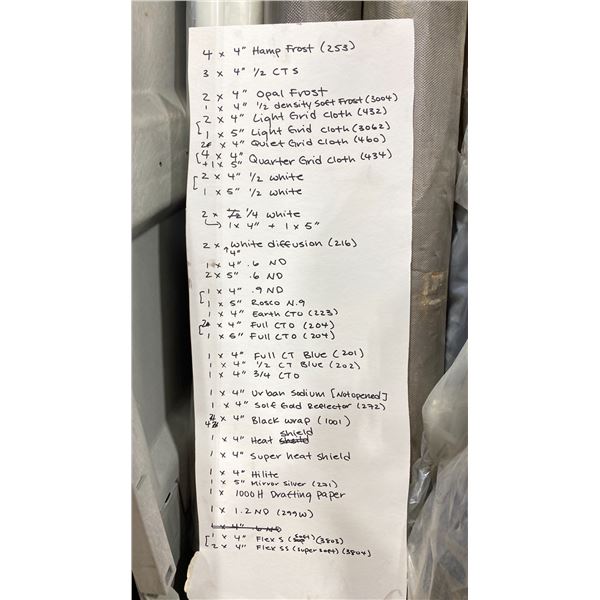 4 x 4" Hamp Frost (253)
3 x 4" 1/2 CTS
2 x 4" Opal Frost
1 x 4" 1/2 density Soft Frost (3004)
2 x 4" Light Grid Cloth (432)
1 x 5" Light Grid Cloth (3062)
x 4" Quiet Grid Cloth (460)
4 x 4" Quarter Grid Cloth (434)
+ 1 x 5"
2 x 4" 1/2 white
1 x 5" 1/2 white
2 x 1/4 white
1 x 4" + 1 x 5"
2 x white diffusion (216)
4"
1 x 4" .6 ND
2 x 5" .6 ND
1 x 4" .9 ND
1 x 5" Rosco N.9
1 x 4" Earth CTO (223)
x 4" Full CTO (204)
1 x 5" Full CTO (204)
1 x 4" Full CT Blue (201)
1 x 4" 1/2 CT Blue (202)
1 x 4" 3/4 CTO
1 x 4" Urban Sodium [Not opened]
1 x 4" Soft Gold Reflector (272)
x 4" Black wrap (1001)
shield
1 x 4" Heat
1 x 4" Super heat shield
1 x 4" Hilite
1 x 5" Mirror Silver (271)
1 x 1000H Drafting Paper
1 x 1.2 ND (299W)
1 x 4" .6 ND
1 x 4" Flex S (soft) (3803)
2 x 4" Flex SS (super soft) (3804)